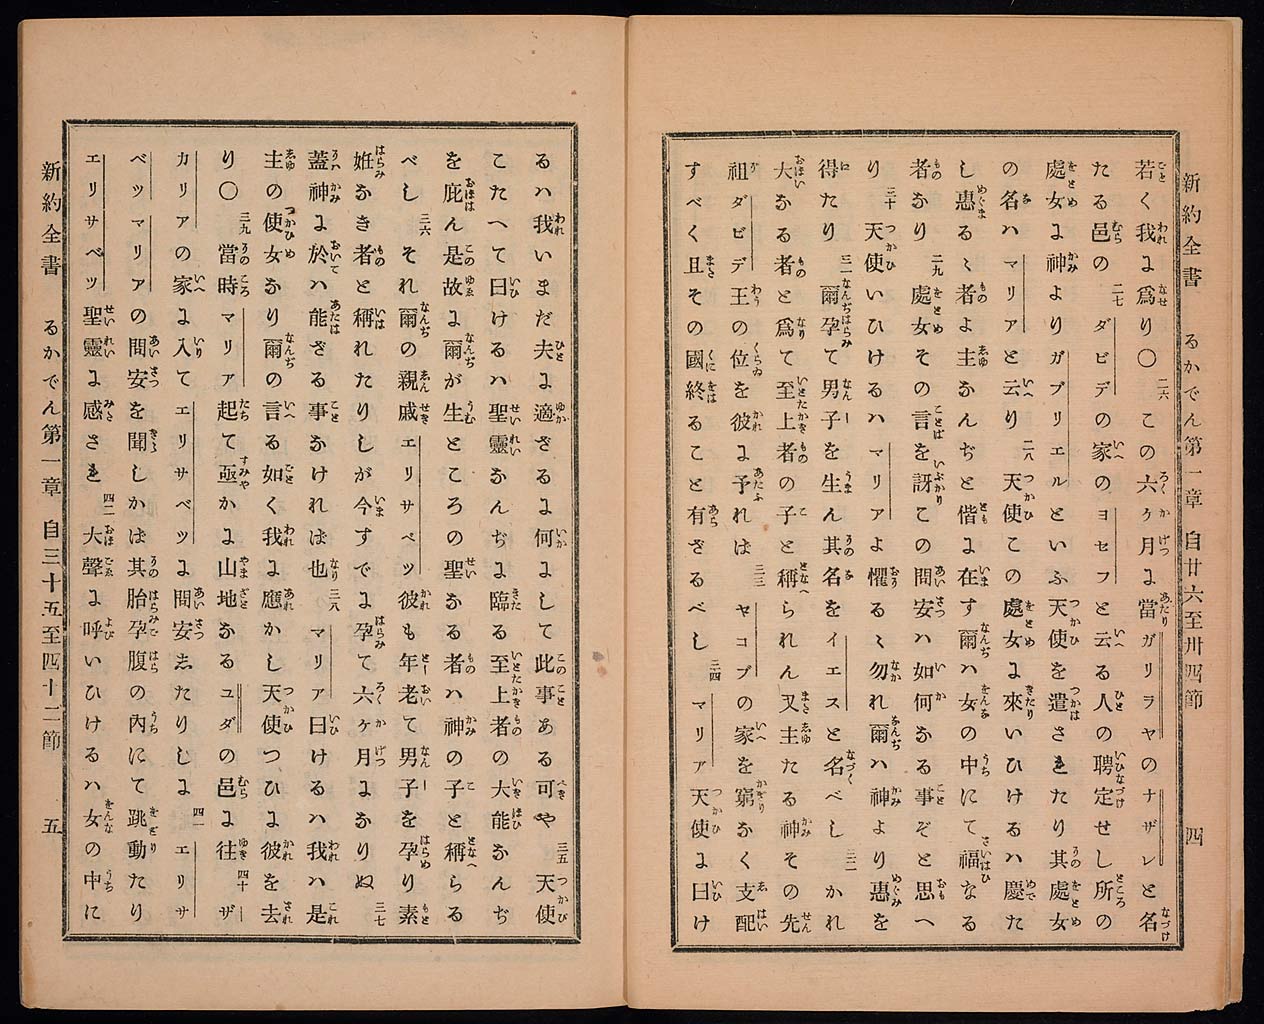 新約全書 るかでん第一章 自廿六至卅四節 四
若く我よ爲り〇 二六 この六ヶ月よ當ガリラヤのナザレと名
たる邑の 二七 ダビデの家のヨセフと云る人の聘定せし所の
處女よ神よりガブリエルといふ天使を遣されたり其處女
の名ハマリアと云り 二八 天使この處女よ來いひけるハ慶た
し惠るゝ者よ主なんぢと偕よ在す爾ハ女の中にて福なる
者なり 二九 處女その言を訝この問安ハ如何なる事ぞと思へ
り 三十 天使いひけるハマリアよ懼るゝ勿れ爾ハ神より惠を
得たり 三一 爾孕て男子を生ん其名をイエスと名べし 三二 かれ
大なる者と爲て至上者の子と稱られん又主たる神その先
祖ダビデ王の位を彼よ予れは 三三 ヤコブの家を窮なく支配
すべく且その國終ること有ざるべし 三四 マリア天使よ曰け
るハ我いまだ夫よ適ざるよ何よして此事ある可や 三五 天使
こたへて曰けるハ聖靈なんぢよ臨る至上者の大能なんぢ
を庇ん是故よ爾が生ところの聖なる者ハ神の子と稱らる
べし 三六 それ爾の親戚エリサベツ彼も年老て男子を孕り素
姙なき者と稱れたりしが今すでよ孕て六ヶ月よなりぬ 三七
蓋神よ於ハ能ざる事なけれは也 三八 マリア曰けるハ我ハ是
主の使女なり爾の言る如く我よ應かし天使つひよ彼を去
り〇 三九 當時マリア起て亟かよ山地なるユダの邑よ往 四十 ザ
カリアの家よ入てエリサベツよ問安志たりしよ 四一 エリサ
ベツマリアの問安を聞しかは其胎孕腹の內にて跳動たり
エリサベツ聖靈よ感され 四二 大聲よ呼いひけるハ女の中に
新約全書 るかでん第一章 自三十五至四十二節 五